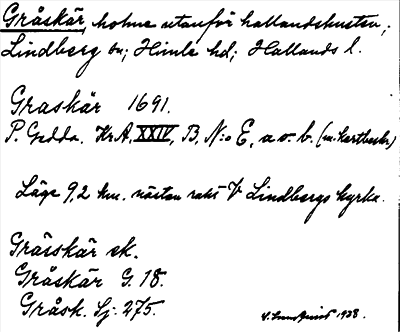 Gråskär, holme utanför hallandskusten;
Lindberg sn; Himle hd; Hallands l.
Graskär 1691.
P. Gedda. Kr.A. XXIV, B, N:o E, a o. b. (m. kartbeskr.)
Läge 9,2 km. nästan rakt V Lindbergs kyrka.
Gråsskär ek.
Gråskär G. 18.
Gråsk. Sj: 275.
1938.